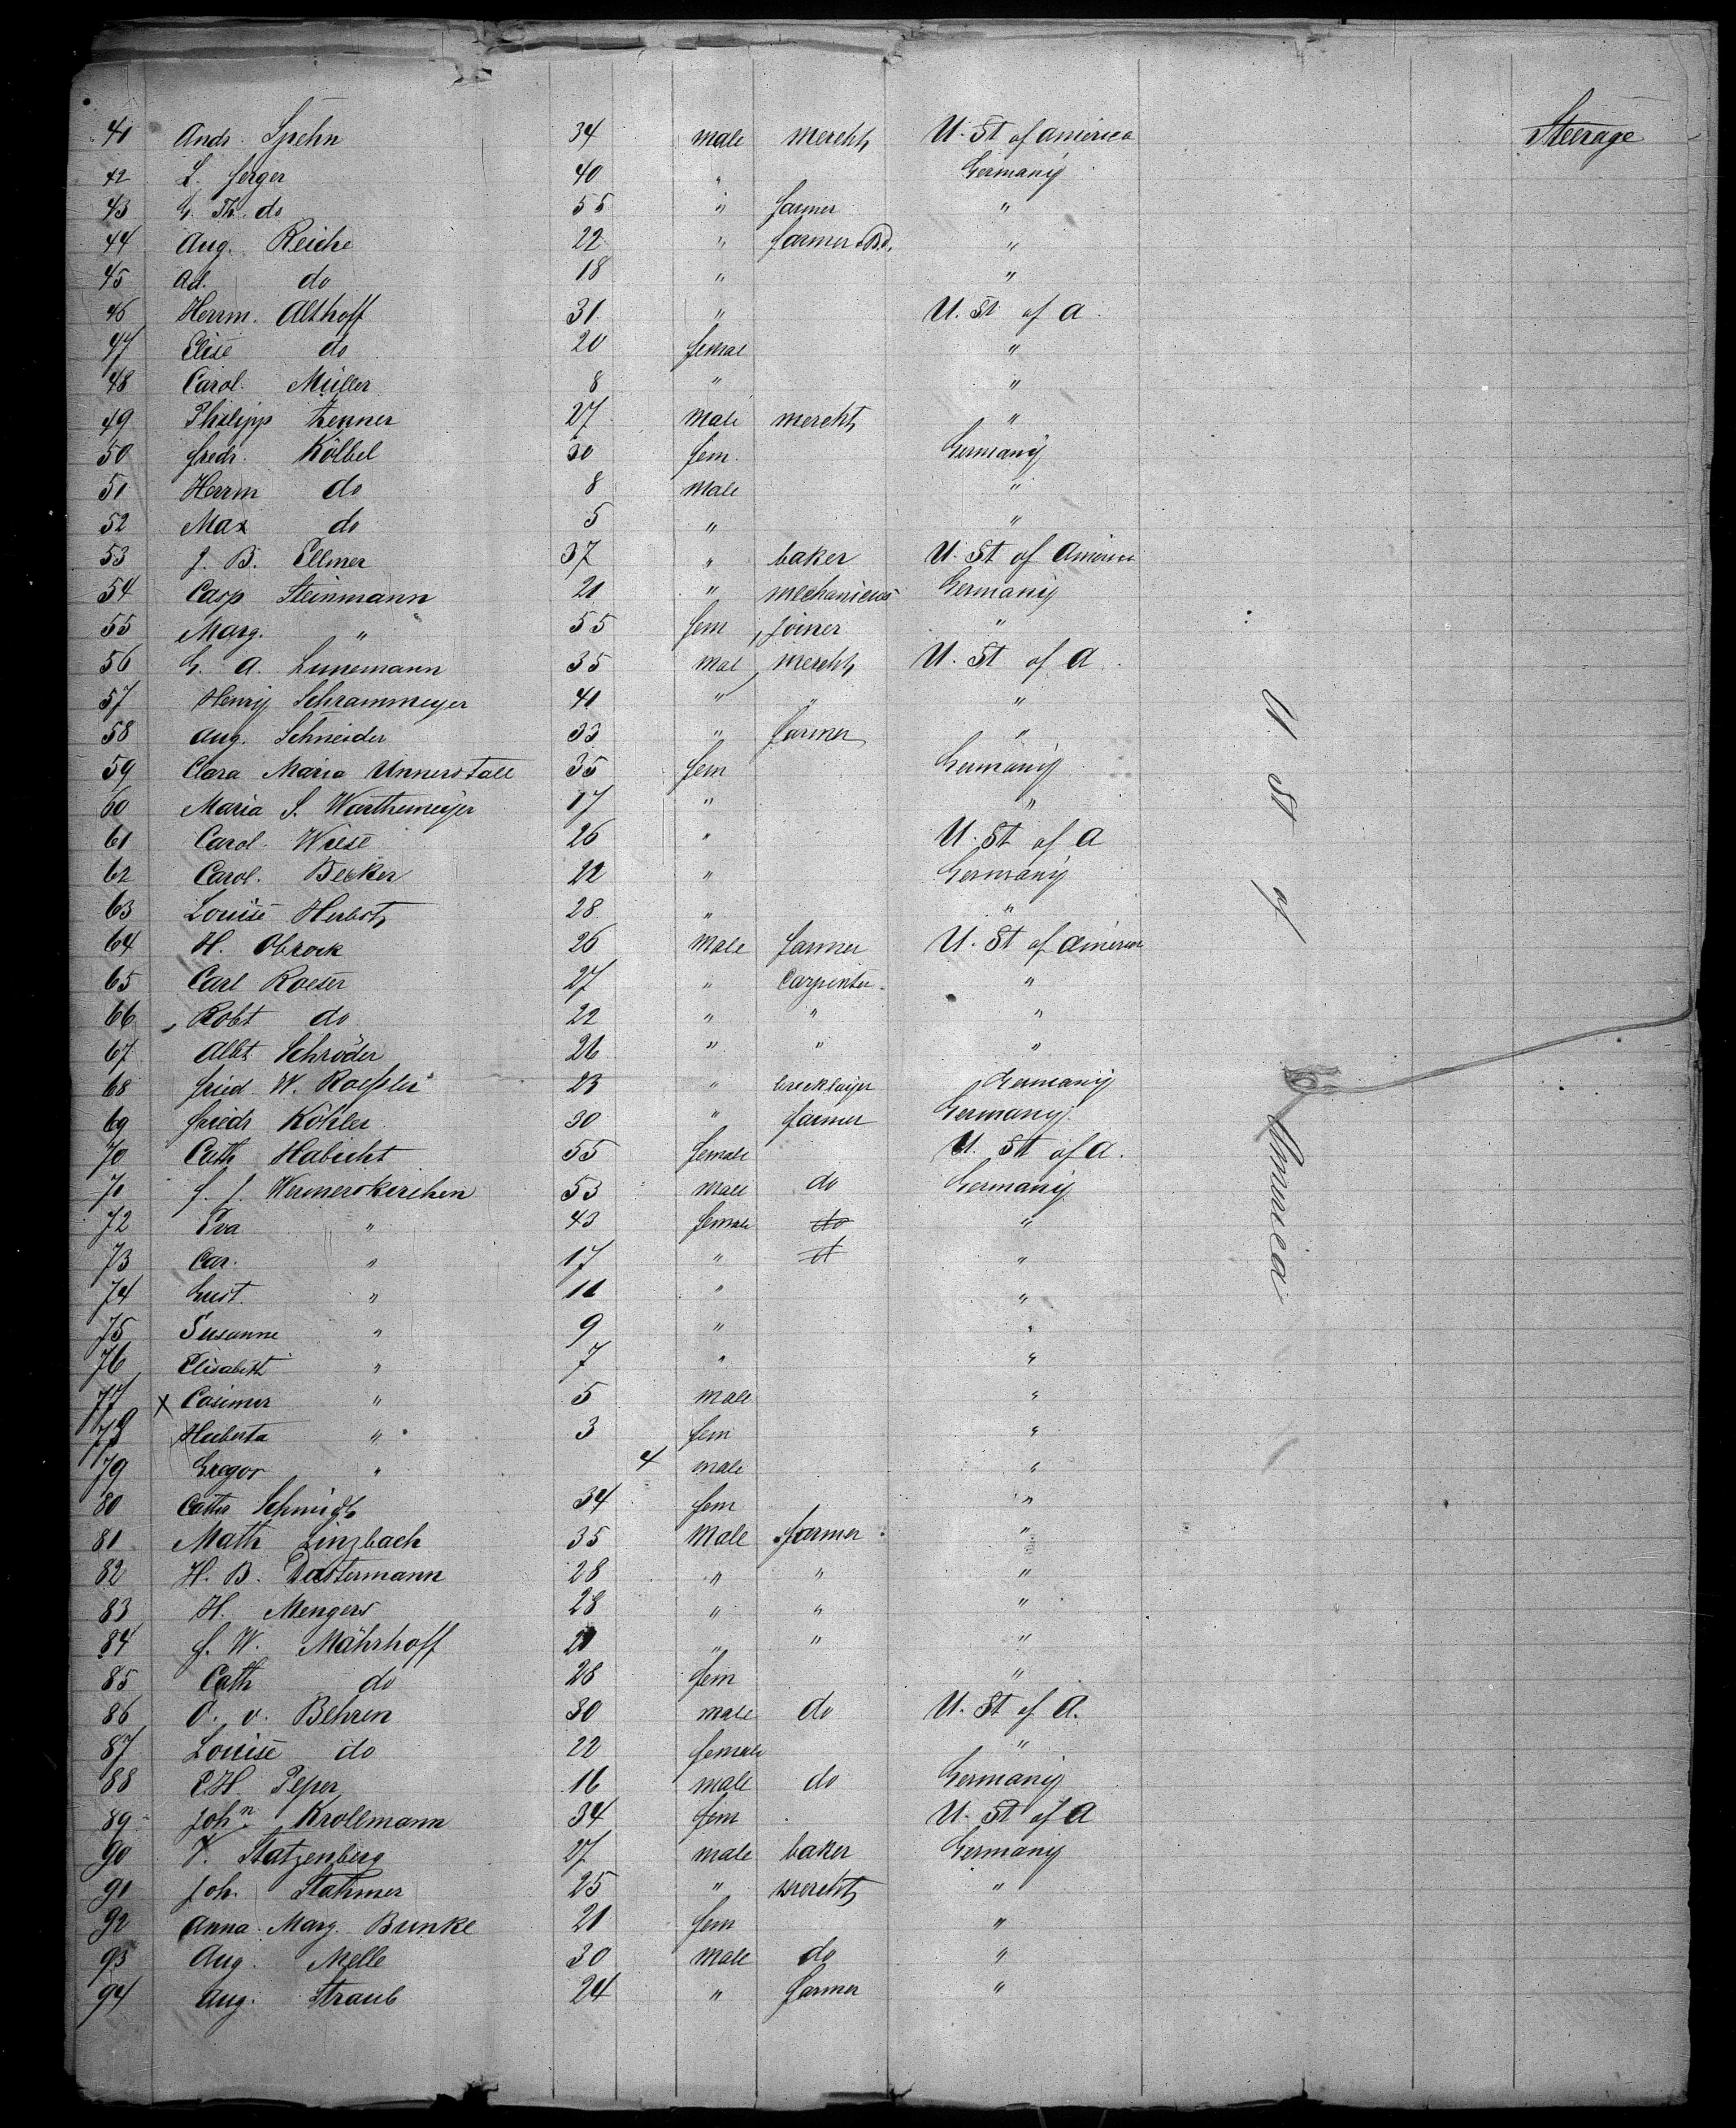 41 Andr. Spehn 34 male mercht U. St of America Steerage
42 L. Jerger 40 " Germany
43 G. Th. do 55 " farmer "
44 Aug. Reiche 22 " farmer "
45 Ad. do 18 " "
46 Herrm. Althoff 31 " U. St of A
47 Elise do 20 femal "
48 Carol. Müller 8 " "
49 Philipp Zenner 27 male mercht "
50 Fredr. Kölbel 30 fem. Germany
51 Herrm do 8 male "
52 Max do 5 " "
53 J. B. Ellmer 37 " baker U. St of America
54 Casp Steinmann 21 " mechanicus Germany
55 Marg. " 55 fem joiner "
56 G. A. Lunemann 35 mal mercht U. St of A
57 Henry Schrammeyer 41 " " "
58 Aug. Schneider 33 " farmer "
59 Clara Maria Unnerstall 35 fem Germany
60 Maria S. Warthemeyer 17 " "
61 Carol. Wiese 26 " U. St of A
62 Carol. Becker 22 " Germany
63 Louise Herbst 28 " "
64 H. Obrock 26 male farmer U. St of America
65 Carl Roeser 27 " Carpenter "
66 Robt do 22 " " "
67 Albt Schröder 26 " " "
68 Fried W. Roessler 23 " bricklayer Germany
69 Friedr Köhler 30 " farmer Germany
70 Cath Habicht 55 female U. St of A.
71 J. J. Wermerskirchen 53 male do Germany
72 Eva " 43 female do "
73 Car. " 17 " d "
74 Gust. " 11 " "
75 Susanne " 9 " "
76 Elisabeth " 7 " "
77 x Casimir " 5 male "
78 Huberta " 3 fem "
79 Gregor " 4 male "
80 Cathr Schmidt 34 fem "
81 Math Linzbach 35 male farmer "
82 H. B. Dastermann 28 " " "
83 H. Mengers 28 " " "
84 F. W. Mährhoff 21 " " "
85 Cath do 28 fem "
86 O. v. Behren 30 male do U. St of A.
87 Louise do 22 female "
88 P H Peper 16 male do Germany
89 John Krollmann 34 fem U. St of A
90 V. Statzenberg 27 male baker Germany
91 Joh. Stahmer 25 " mercht "
92 Anna Marg. Brunke 21 fem "
93 Aug. Melle 30 male do "
94 Aug. Straub 24 " farmer "
U. St of America